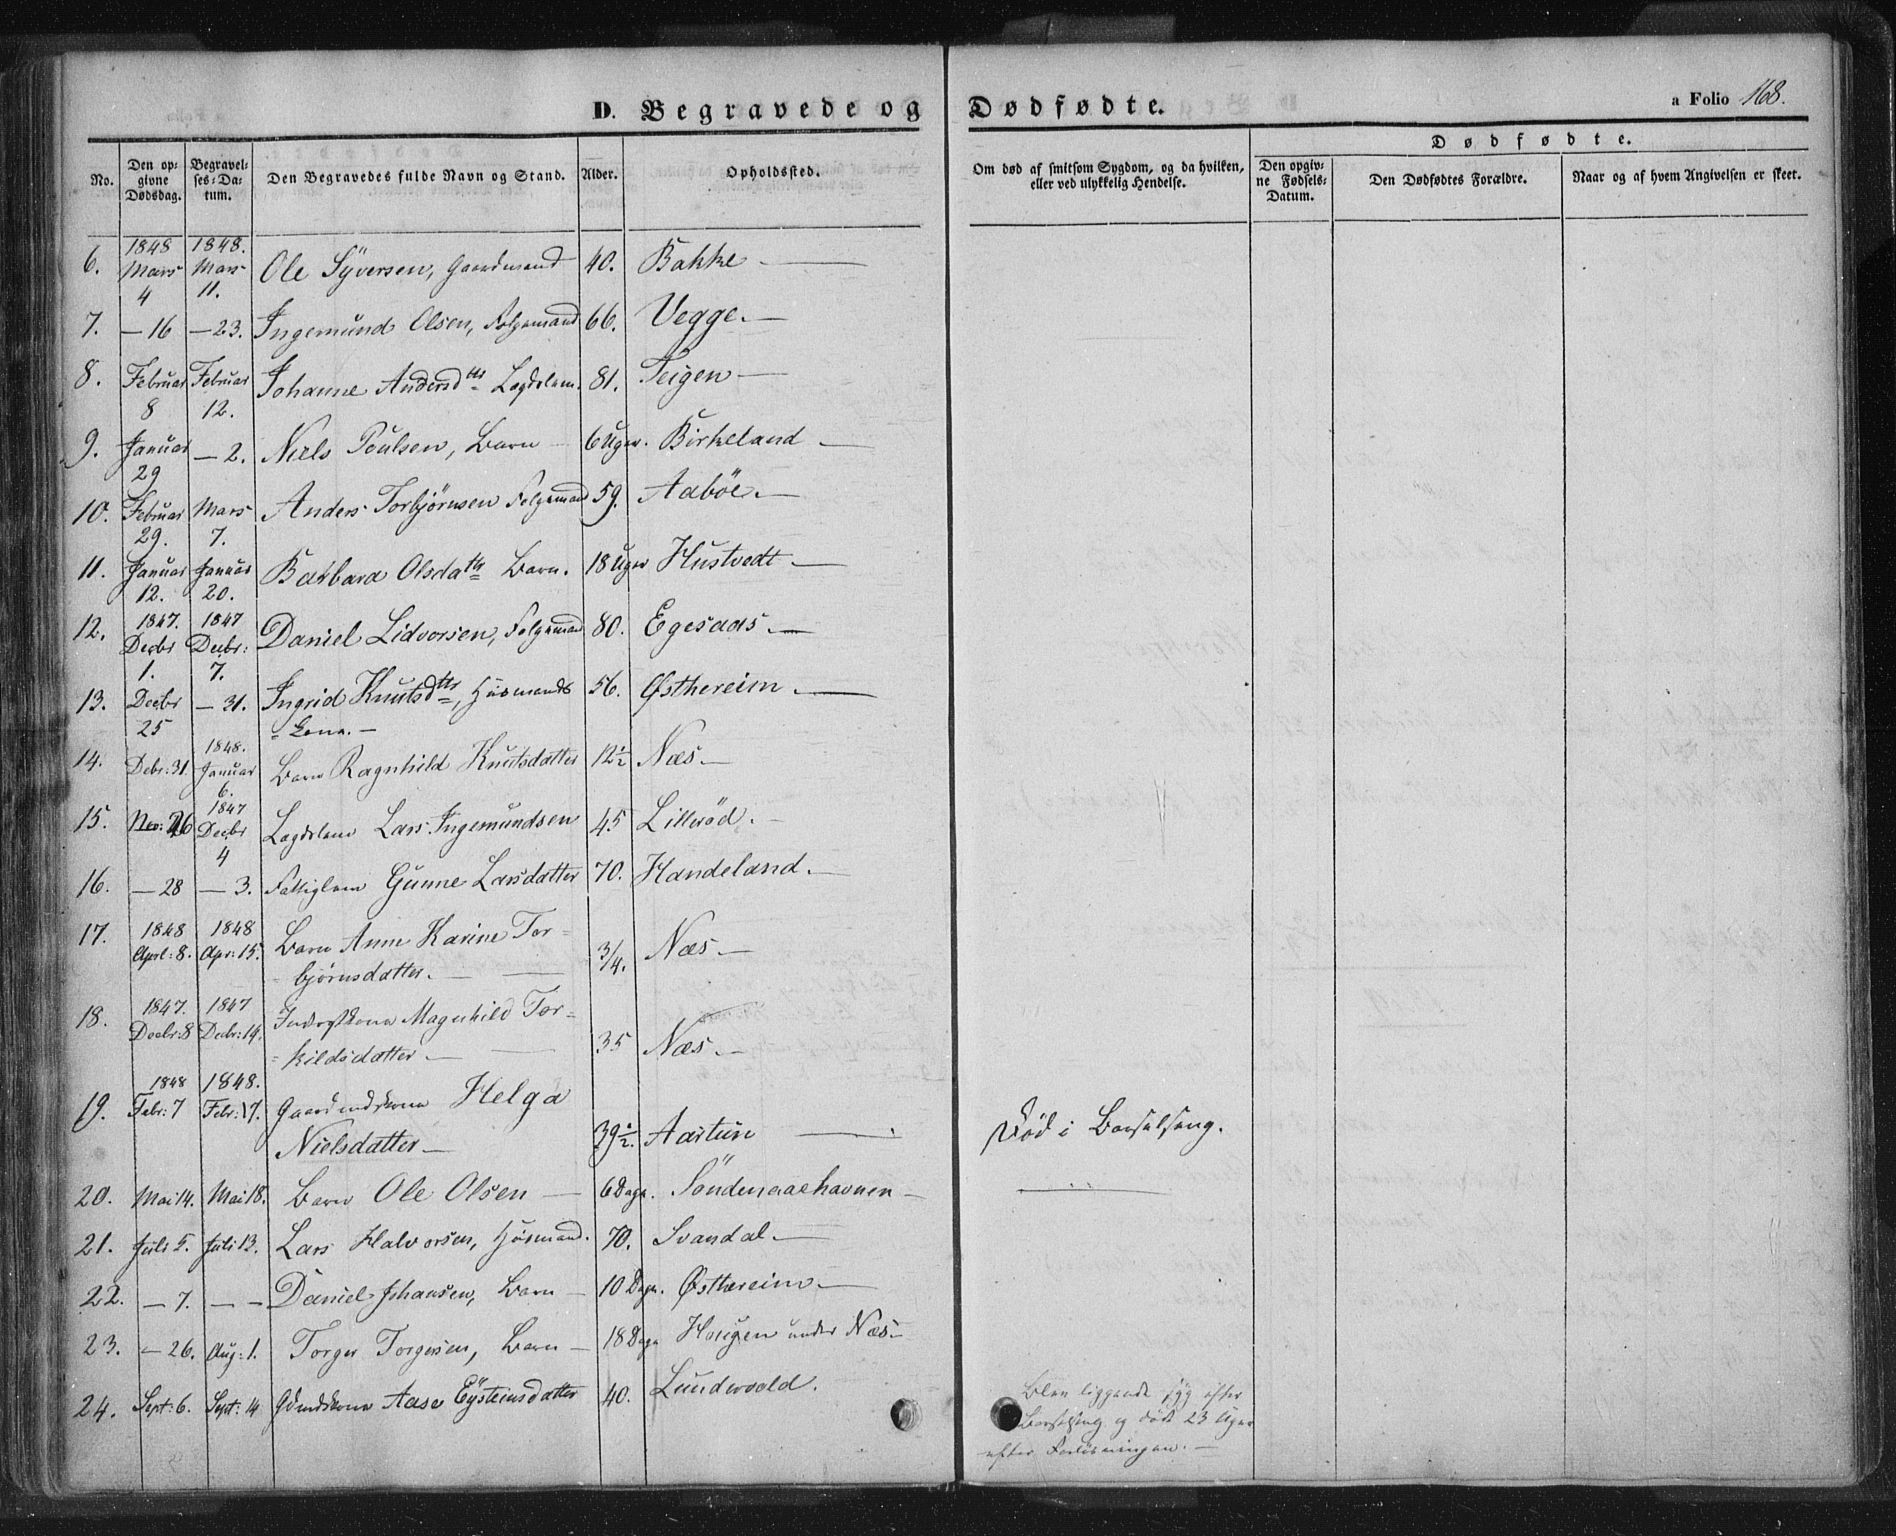 D. Begravede og Dødfødte.
a Folio 168.
No.
Den opgivne Dødsdag.
Begravelses-Datum.
Den Begravedes fulde Navn og Stand.
Alder.
Opholdssted.
Om død af smitsom Sygdom, og da hvilken, eller ved ulykkelig Hendelse.
Dødfødte.
Den opgivne Fødsels-Datum.
Den Dødfødtes Forældre.
Naar og af hvem Angivelsen er skeet.
6. 1848 Mars 4 1848. Mars 11. Ole Syversen, Gaardmand 40. Bakke —
7. — 16 — 23. Ingemund Olsen, Folgemand 66. Vegge. —
8. Februar 8 Februar 12. Johanne Andersdtr Lægdslem. 81. Teigen —
9. Januar 29 — 2. Niels Poulsen, Barn — 6 Uger. Birkeland —
10. Februar 29. Mars 7. Anders Torbjørnsen Folgemand 59. Aabøe. —
11. Januar 12. Januar 20. Barbara Olsdatr Barn. 18 Uger Hustvedt —
12. 1847. Decbr 1. 1847 Decbr: 7. Daniel Lidvorsen, Folgemand 80. Egesaas. —
13. Decbr 25 — 31. Ingrid Knutsdtr, Huusmands
= Kone. — 56. Østhereim. —
14. Debr: 31 1848. Januar 6. Barn Ragnhild Knutsdatter 12½ Næs. —
15. Nov: 26 1847 Decbr 4 Lægdslem Lars Ingemundsen 45 Lillerød. —
16. — 28 — 3. Fattiglem Gunne Larsdatter 70. Handeland. —
17. 1848 Aprl: 8. 1848 Apr: 15. Barn Ann Karine Tor=
= bjørnsdatter. — — 3/4. Næs —
18. 1847. Decbr: 8 1847 Decbr: 14. Magnhild Tor=
= kildsdatter — — 35 Næs. —
19. 1848 Febr: 7 1848. Febr: 17. Gaardmdskone Helga
Nielsdatter — 39½. Aartun — Død i Barselseng.
20. Mai 14. Mai 18. Barn Ole Olsen — 6 Dage. Søndenaaehavnen —
21. Juli 5. Juli 13. Lars Halvorsen, Huusmand. 70. Svandal —
22. — 7. — — Daniel Johansen, Barn — 10 Dage. Østhereim —
23. — 26. Aug: 1. Torger Torgersen, Barn — 18 Dage Haugen under Næs —
24. Sept: 6. Sept: 14 Gdmdskone Aase Eysteinsdatter 40. Lundevold.
Blev liggende syg efter
Barselseng og døde 23 Uger
efter Forløsningen. —